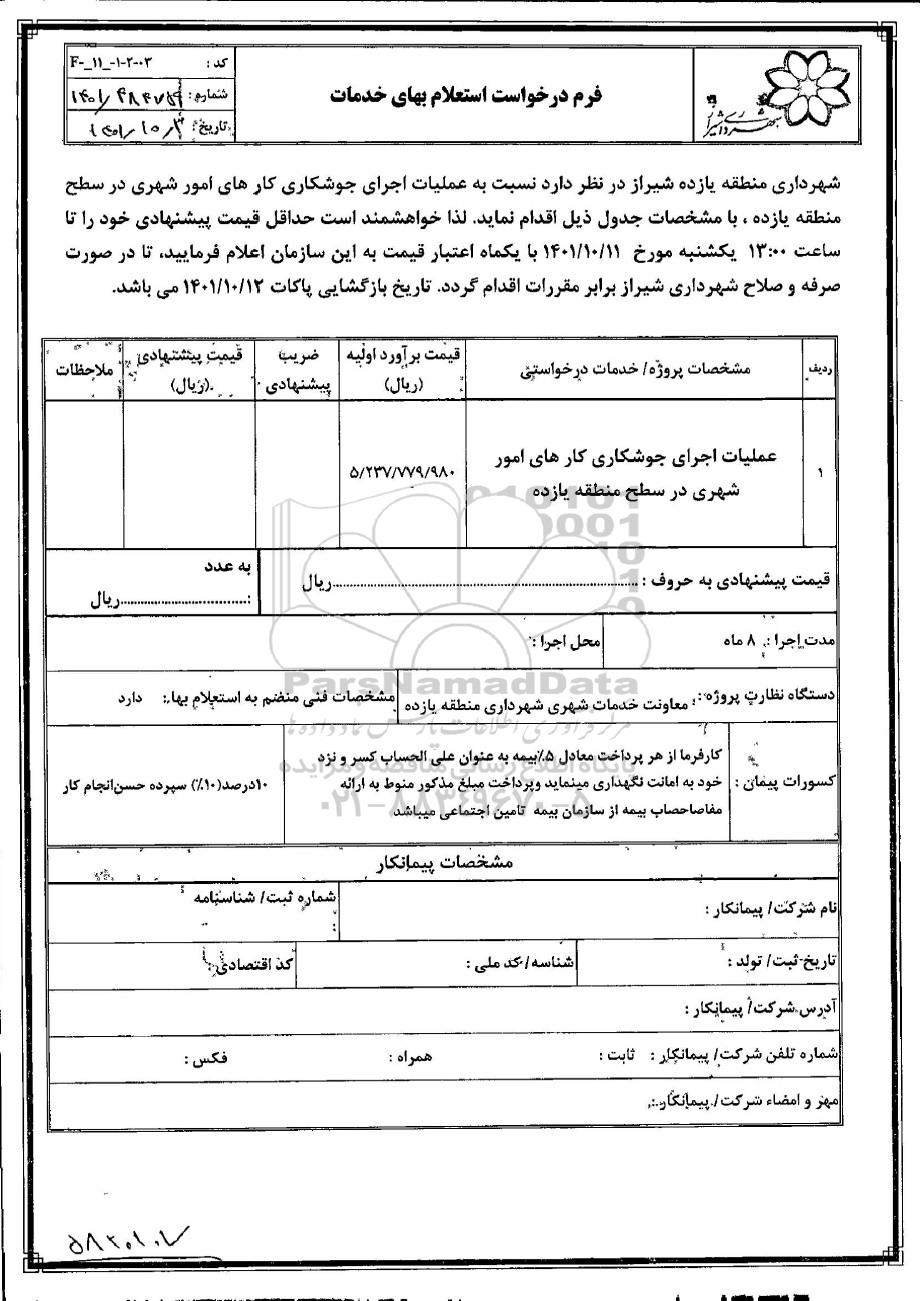 کد : F-_۱۱_-۱-۲-۰۳
شماره:
تاریخ:
فرم درخواست استعلام بهای خدمات
شهرداری شیراز
شهرداری منطقه یازده شیراز در نظر دارد نسبت به عملیات اجرای جوشکاری کار های امور شهری در سطح
منطقه یازده ، با مشخصات جدول ذیل اقدام نماید. لذا خواهشمند است حداقل قیمت پیشنهادی خود را تا
ساعت ۱۳:۰۰ یکشنبه مورخ ۱۴۰۱/۱۰/۱۱ با یکماه اعتبار قیمت به این سازمان اعلام فرمایید، تا در صورت
صرفه و صلاح شهرداری شیراز برابر مقررات اقدام گردد. تاریخ بازگشایی پاکات ۱۴۰۱/۱۰/۱۲ می باشد.
ردیف
مشخصات پروژه/ خدمات درخواستی
قیمت برآورد اولیه
(ریال)
ضریب
پیشنهادی
قیمت پیشنهادی
(ریال)
ملاحظات
۱
عملیات اجرای جوشکاری کار های امور
شهری در سطح منطقه یازده
۵/۲۳۷/۷۷۹/۹۸۰
قیمت پیشنهادی به حروف : ......................................................ریال
به عدد
:..................................ریال
مدت اجرا : ۸ ماه
محل اجرا :
دستگاه نظارت پروژه : معاونت خدمات شهری شهرداری منطقه یازده
مشخصات فنی منضم به استعلام بها : دارد
کسورات پیمان :
کارفرما از هر پرداخت معادل ۵٪بیمه به عنوان علی الحساب کسر و نزد
خود به امانت نگهداری مینماید وپرداخت مبلغ مذکور منوط به ارائه
مفاصاحصاب بیمه از سازمان بیمه تامین اجتماعی میباشد
۱۰درصد(۱۰٪) سپرده حسن‌انجام کار
ParsNamadData
مرکز فرآوری اطلاعات پارس نماد داده ها
پایگاه اطلاع رسانی مناقصه و مزایده
۰۲۱-۸۸۳۴۹۶۷۰-۵
مشخصات پیمانکار
نام شرکت/ پیمانکار :
شماره ثبت/ شناسنامه
:
تاریخ ثبت/ تولد :
شناسه/ کد ملی :
کد اقتصادی :
آدرس شرکت/ پیمانکار :
شماره تلفن شرکت/ پیمانکار : ثابت : همراه : فکس :
مهر و امضاء شرکت/ پیمانکار :